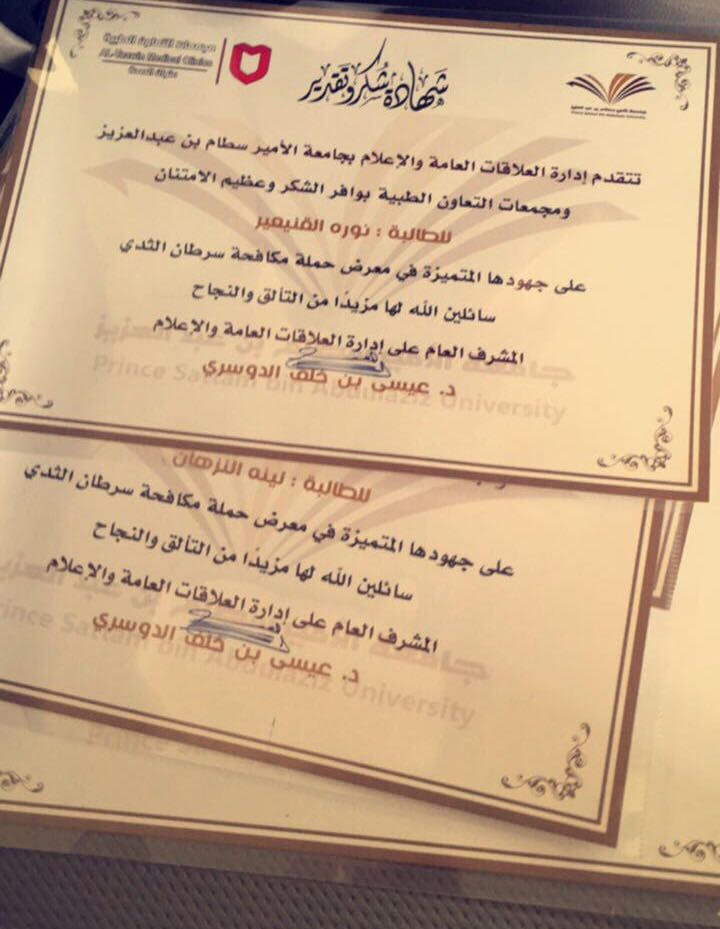 مجمعات التعاون الطبية
AL-Taawin Medical Clinics
شهادة شكر وتقدير
Prince Sattam Bin Abdulaziz University
تتقدم إدارة العلاقات العامة والإعلام بجامعة الأمير سطام بن عبدالعزيز
ومجمعات التعاون الطبية بوافر الشكر وعظيم الامتنان
للطالبة : نوره القنيعير
على جهودها المتميزة في معرض حملة مكافحة سرطان الثدي
سائلين الله لها مزيدًا من التألق والنجاح
المشرف العام على إدارة العلاقات العامة والإعلام
د. عيسى بن خلف الدوسري
جامعة الأمير سطام بن عبد العزيز
Prince Sattam bin Abdulaziz University
للطالبة : لينه النزهان
على جهودها المتميزة في معرض حملة مكافحة سرطان الثدي
سائلين الله لها مزيدًا من التألق والنجاح
المشرف العام على إدارة العلاقات العامة والإعلام
د. عيسى بن خلف الدوسري
جامعة الأمير سطام بن عبد العزيز
Prince Sattam bin Abdulaziz University
Prince